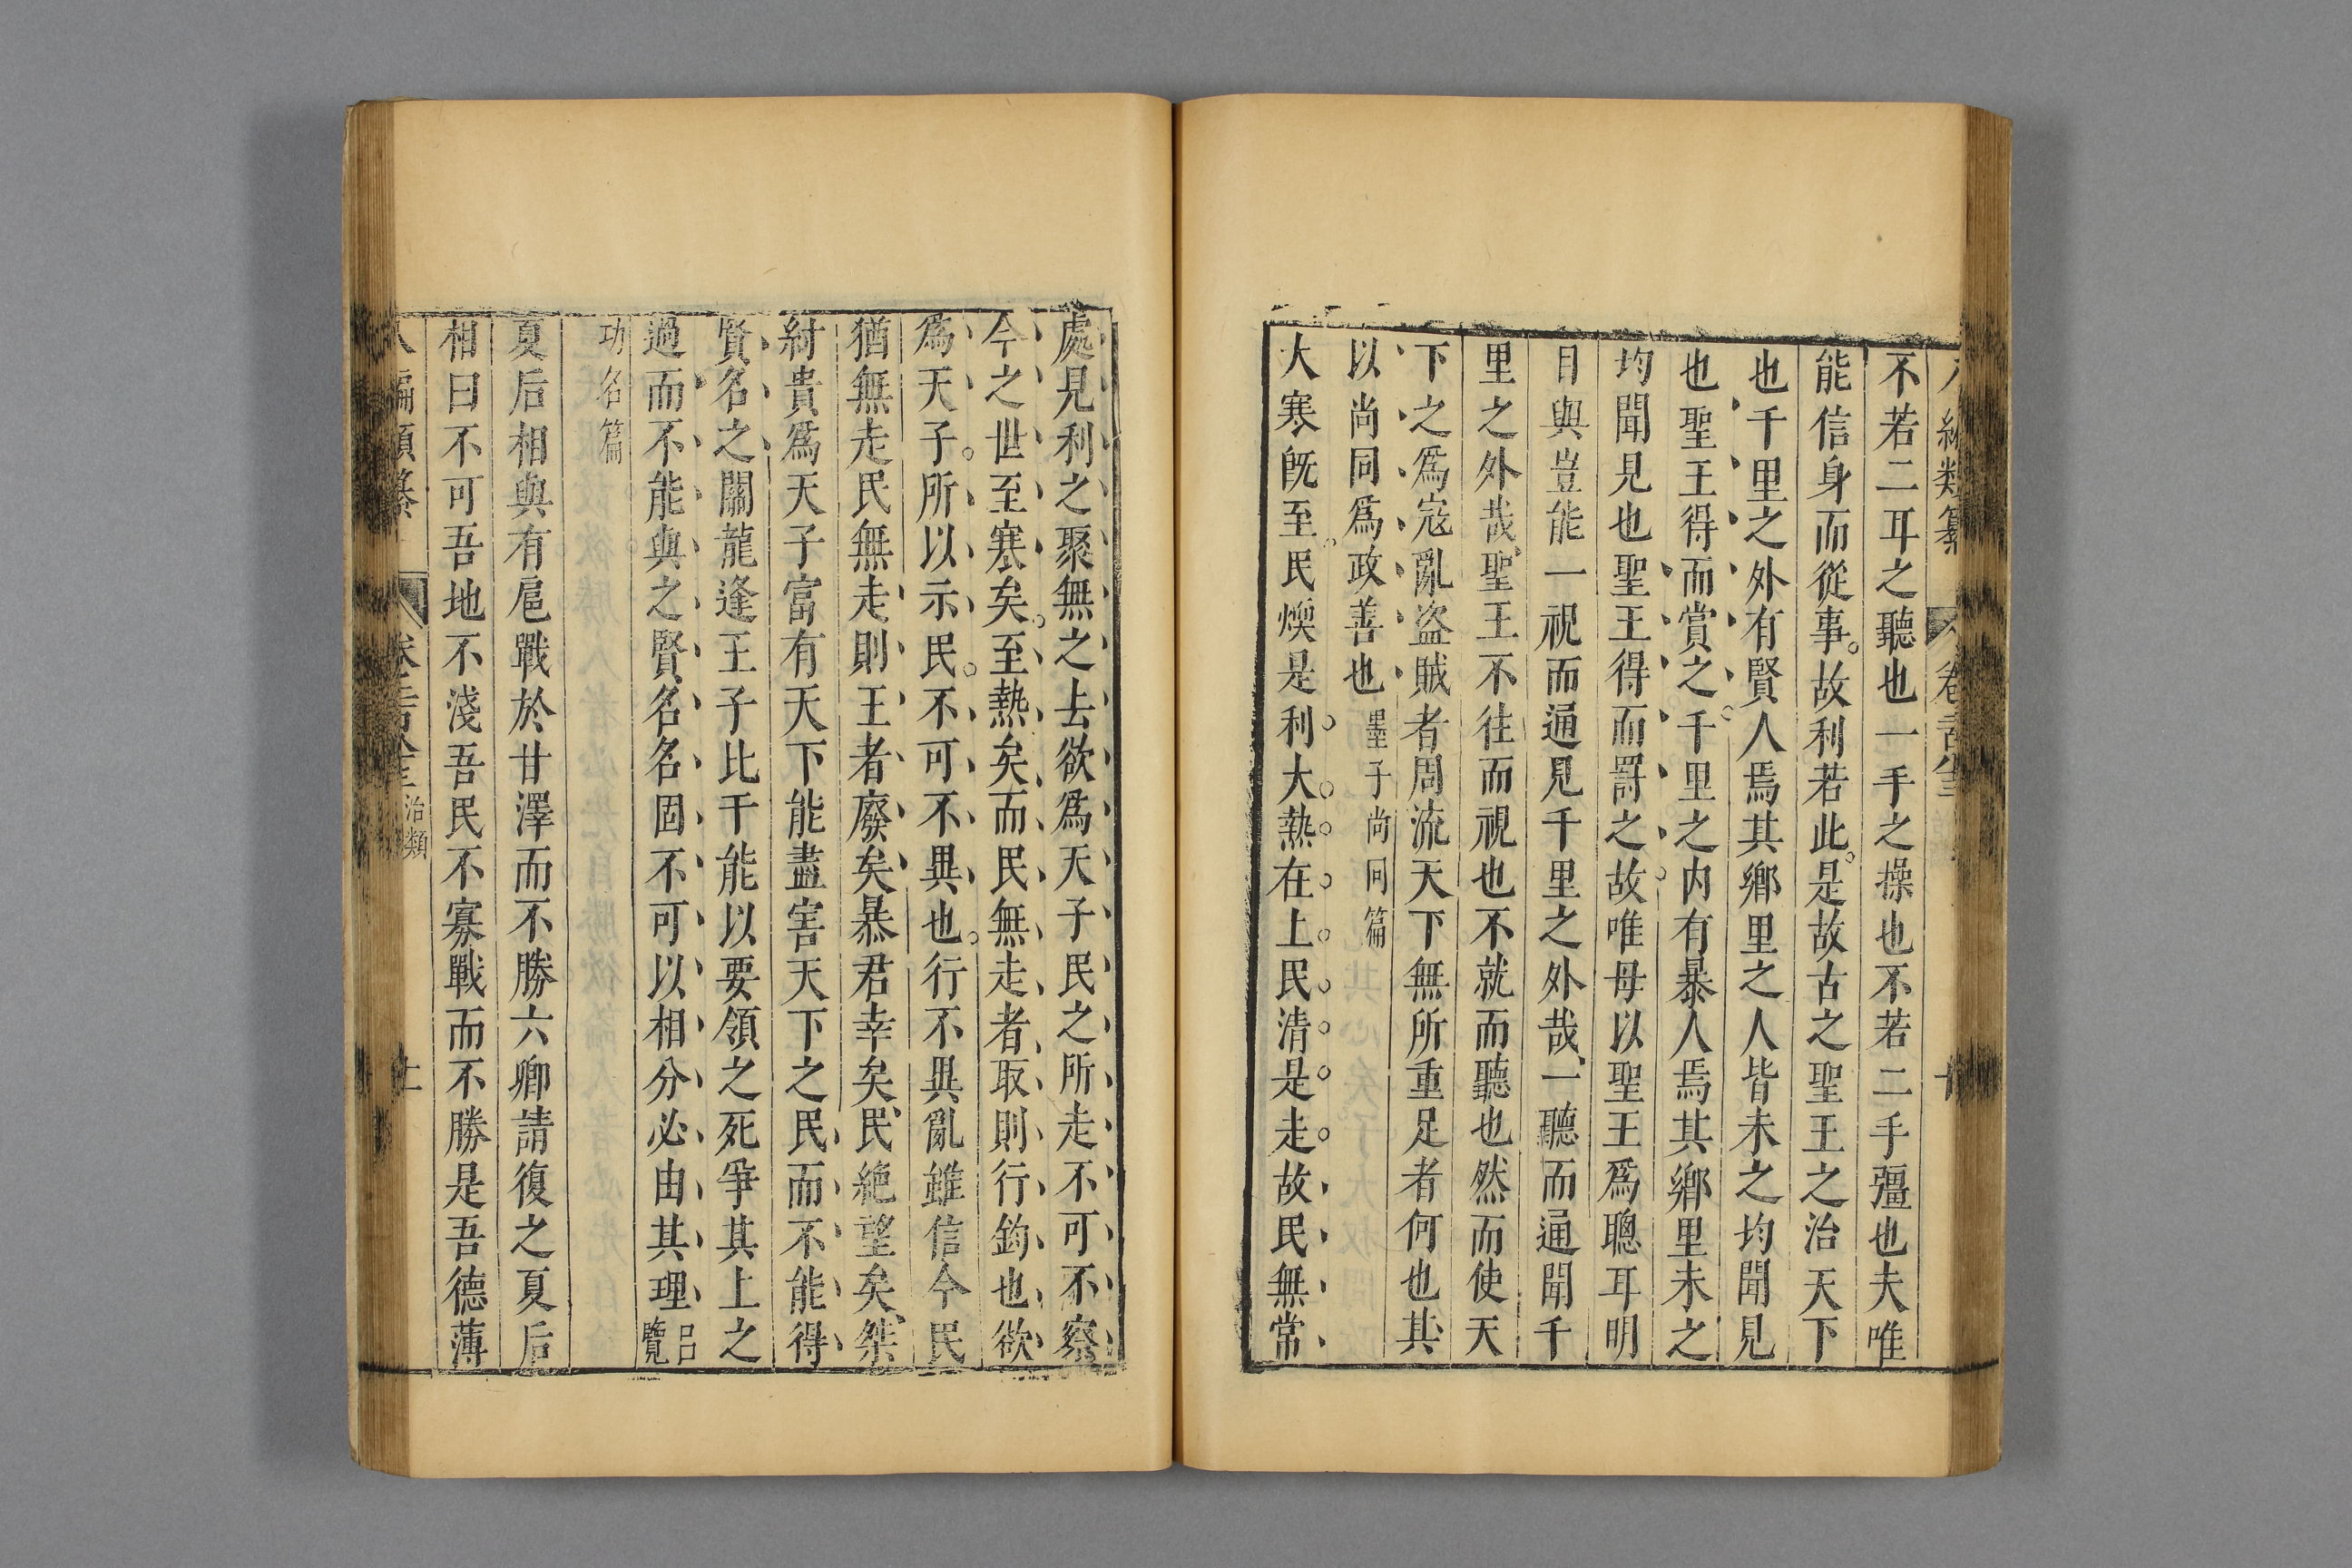 不若二耳之聽也一手之操也不若二手彊也夫唯
能信身而從事。故利若此。是故古之聖王之治天下
也千里之外有賢人焉其鄉里之人皆未之均聞見
也聖王得而賞之。千里之內有暴人焉其鄉里未之
均聞見也聖王得而罸之。故唯毋以聖王爲聰耳明
目與豈能一視而通見千里之外哉、一聽而通聞千
里之外哉、聖王不往而視也不就而聽也然而使天
下之爲寇亂盜賊者周流天下無所重足者何也其
以尚同爲政善也墨子尚同篇
大寒旣至。民煗是利大熱在上民清是走故民無常
處見利之聚無之去欲爲天子民之所走不可不察
今之世至寒矣。至熱矣而民無走者取則行鈞也欲
爲天子。所以示民。不可不異也。行不異亂雖信今民
猶無走民無走則王者廢矣暴君幸矣民絶望矣、桀
紂貴爲天子富有天下能盡害天下之民而不能得
賢名之關龍逢王子比干能以要領之死爭其上之
過而不能與之賢名名固不可以相分必由其理呂覽
功名篇
夏后相與有扈戰於甘澤而不勝六卿請復之夏后
相曰不可吾地不淺吾民不寡戰而不勝是吾德薄
治類